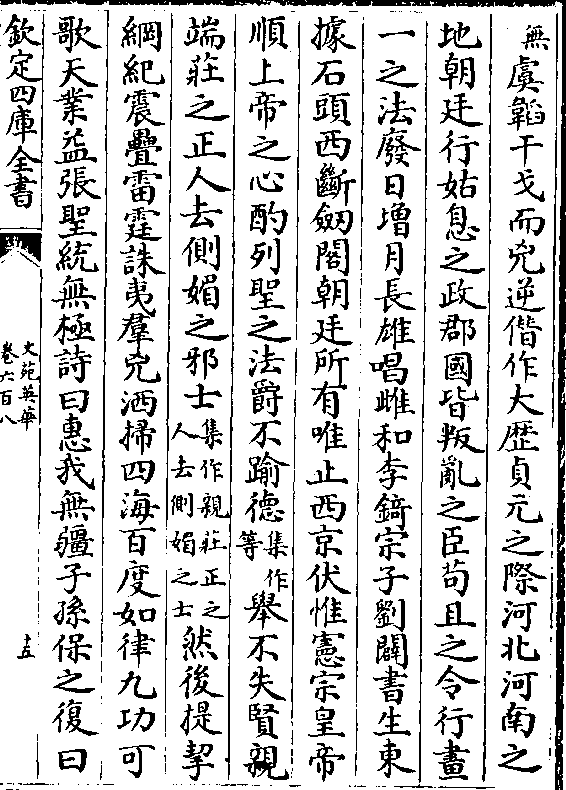 無虞韜干戈而兇逆偕作大歴貞元之際河北河南之
地朝廷行姑息之政郡國皆叛亂之臣苟且之令行畫
一之法廢日增月長雄唱雌和李錡宗子劉闢書生東
據石頭西斷劔閣朝廷所有唯止西京伏惟憲宗皇帝
順上帝之心酌列聖之法爵不踰德集作等舉不失賢親
端莊之正人去側媚之邪士集作親莊正之人去側媚之士然後提挈
綱紀震疊雷霆誅夷羣兇洒掃四海百度如律九功可
歌天業益張聖統無極詩曰惠我無疆子孫保之復曰
欽定四庫全書
文苑英華
卷六百八
十五